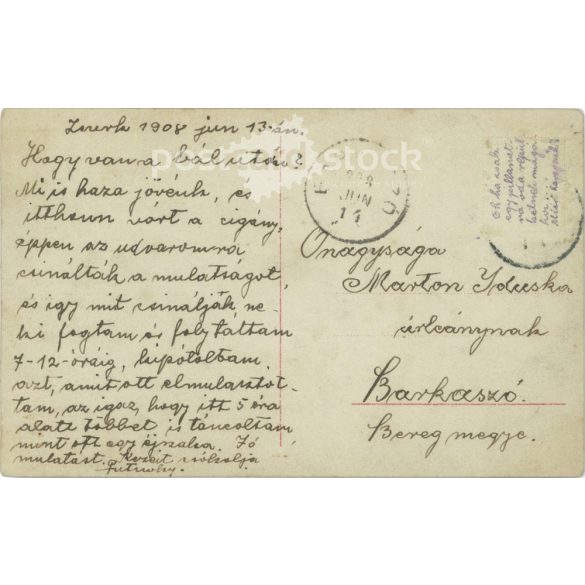 1908 jun 13-án.
Hogy van a bál után?
Mi is haza jövénk, és
itthoun várt a cigány,
éppen az udvaromra
csinálták a mulatságot
és igy mit csinálják ne-
ki fogtam és folytattam
7-12-óráig, kipótoltam
azt, amit ott elmulasztot-
tam, az igaz, hogy itt 5 óra
alatt többet is táncoltam
mint ott egy éjszaka. Jó
mulatást. Kezeit csókolja
JUN
14
Oh ha csak
egy pillanat-
ra oda repül
hetnék magá-
hoz
Ónagysága
Marton Iduska
úrleánynak
Barkaszó.
Bereg megye.
postcard stock